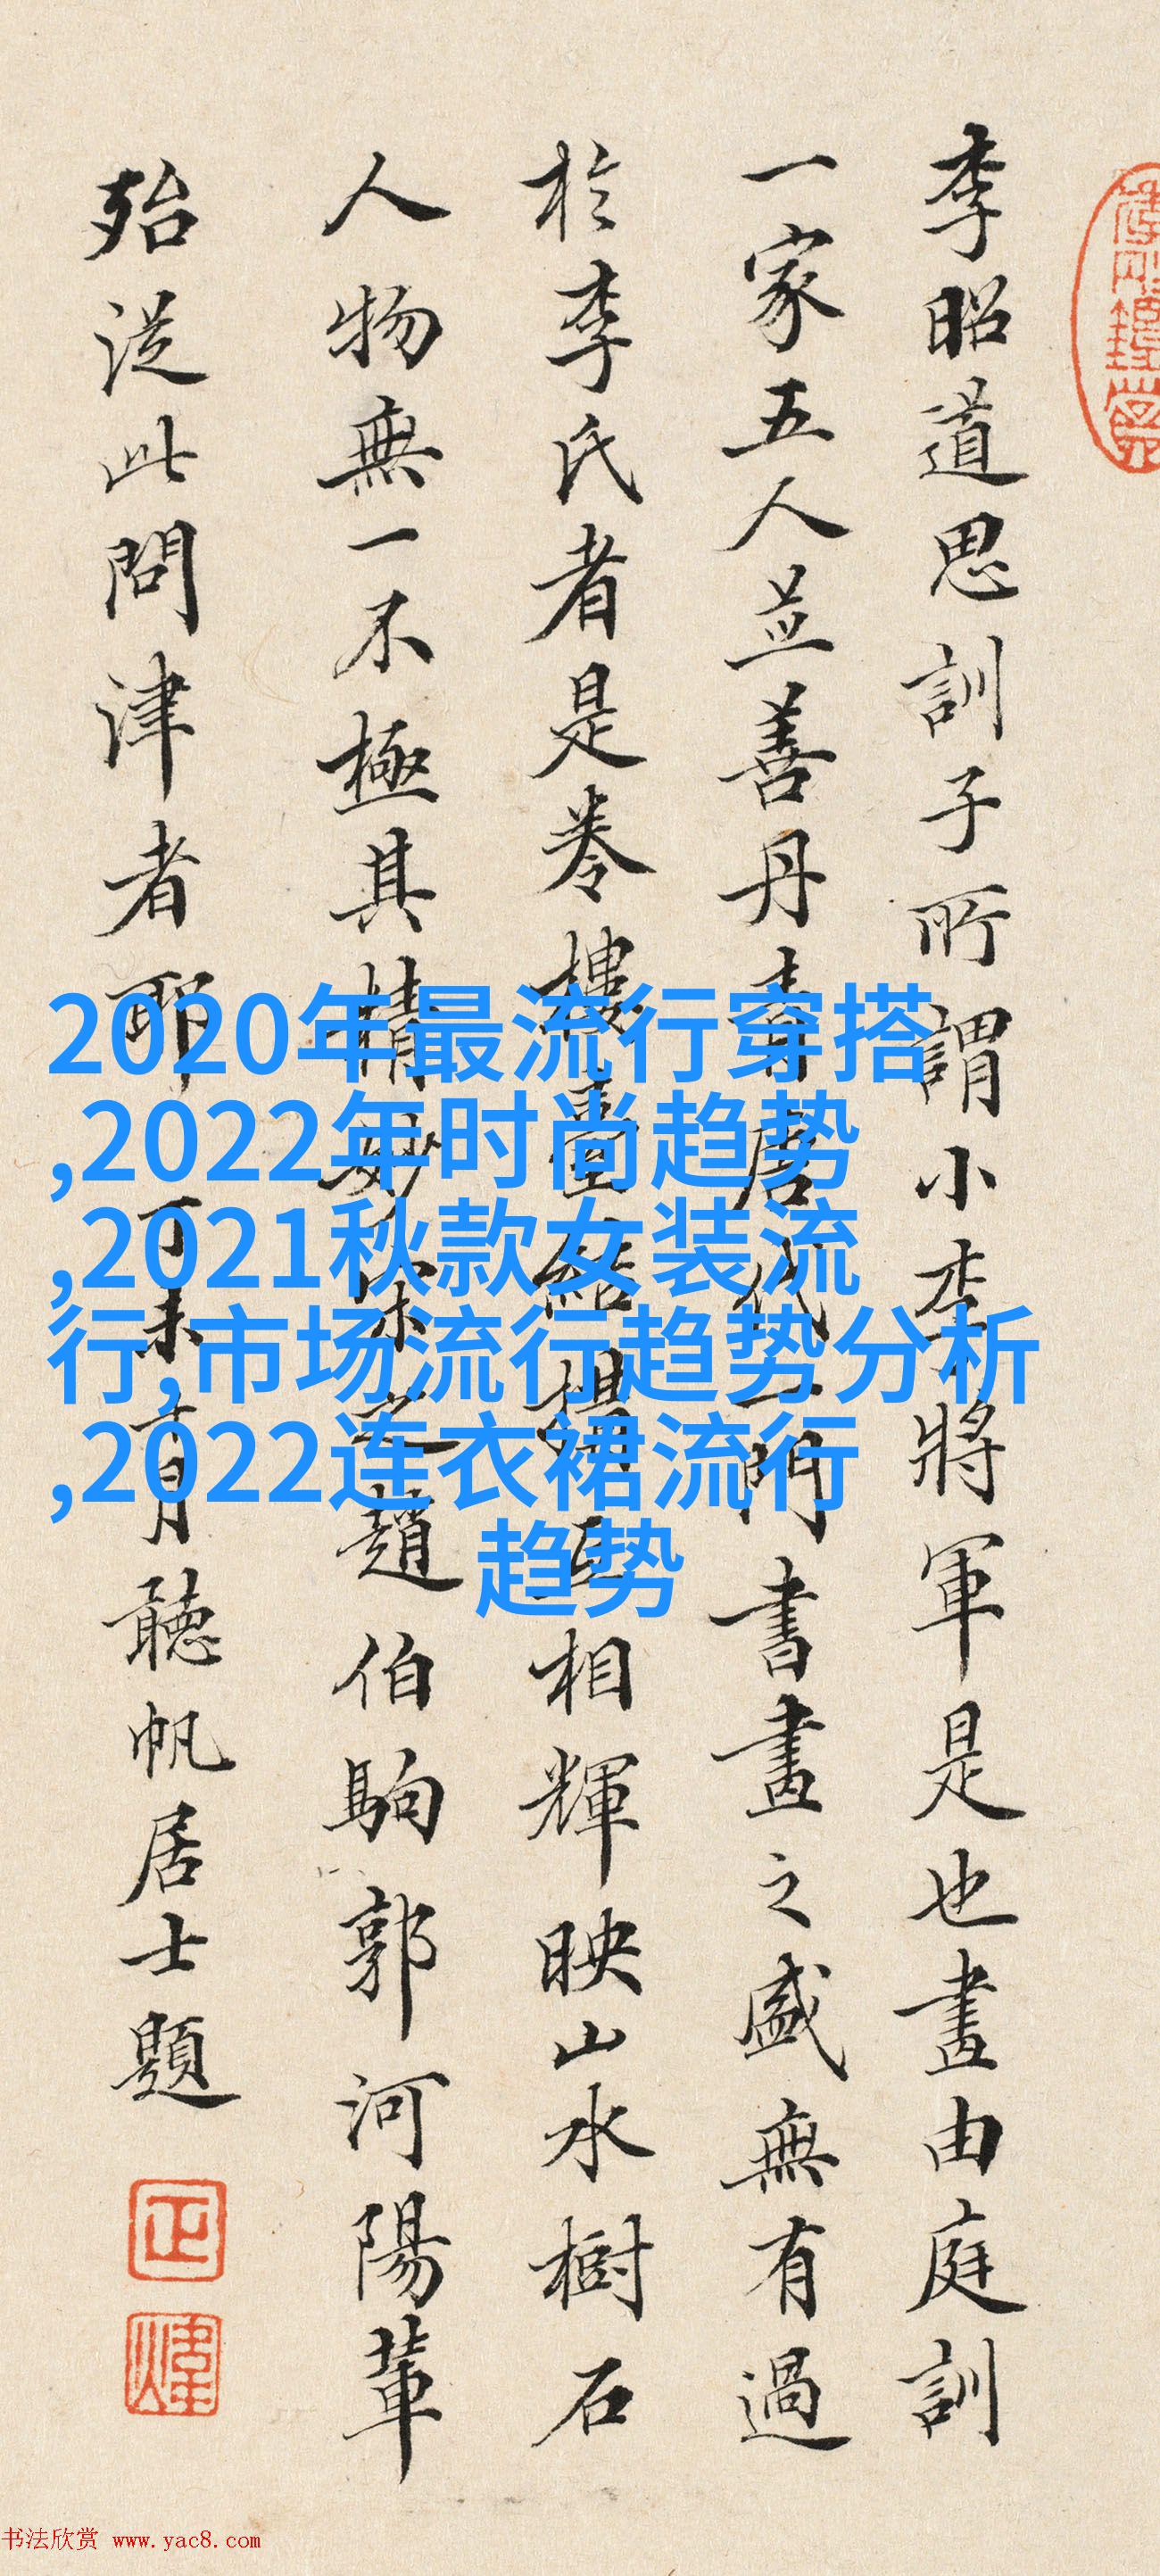 李昭道思訓子所謂小李將軍是也畫由庭訓
一家五人並善丹青唐代一門書畫之盛無有過
於李氏者是卷樓臺結構互相輝映山水樹石
人物無一不極其精妙宋之趙伯駒郭河陽輩
殆從此問津者耶丁未十月聽帆居士題
正
煒
2020年最流行穿搭
,2022年时尚趋势
,2021秋款女装流
行,市场流行趋势分析
,2022连衣裙流行
趋势
书法欣赏 www.yac8.com